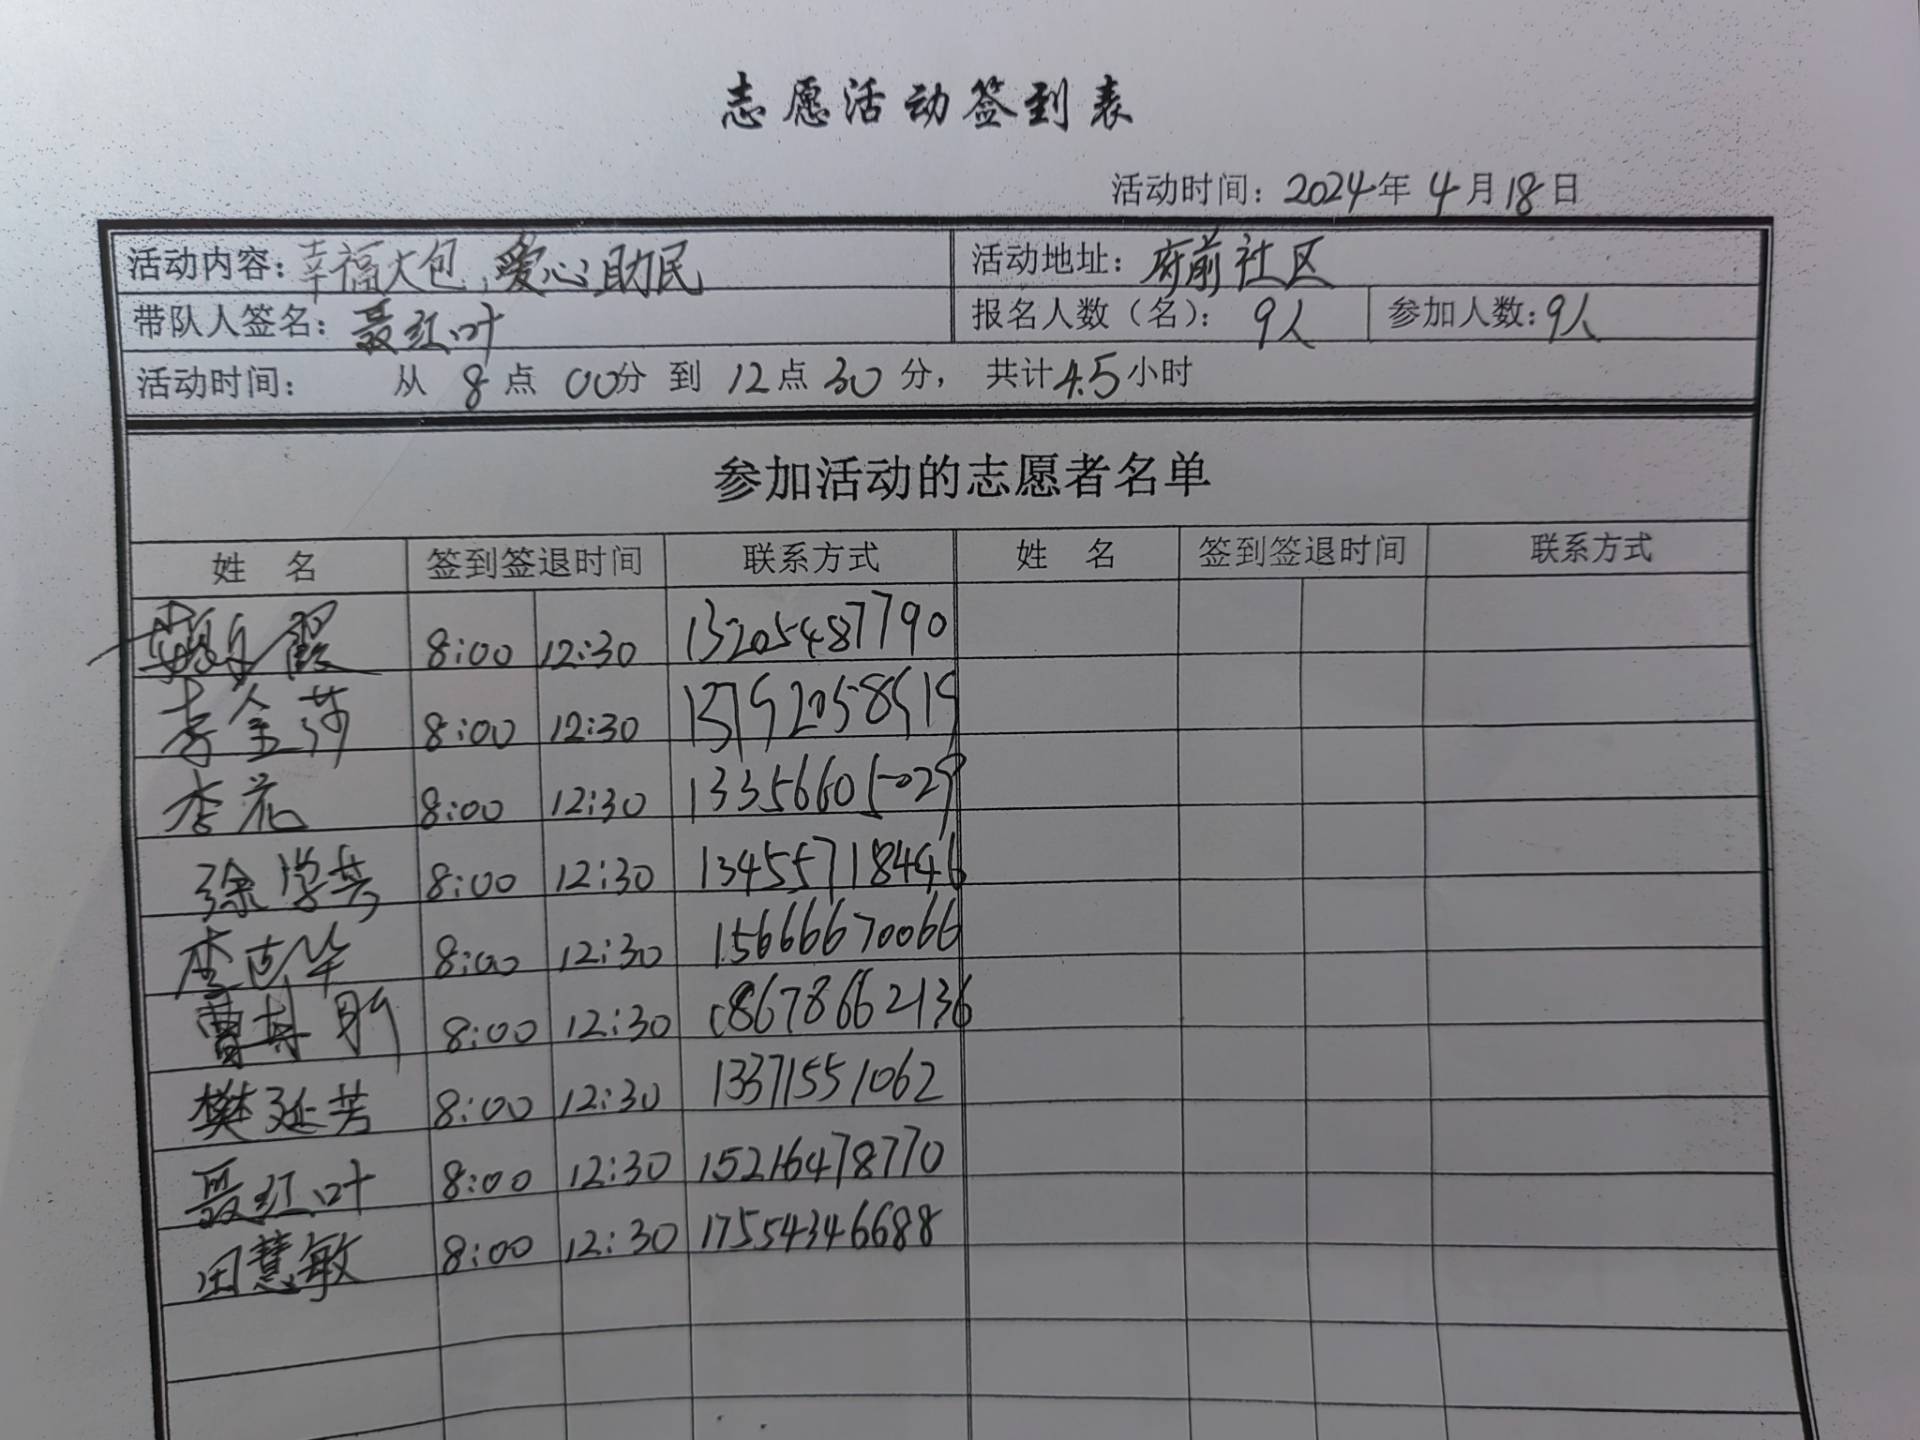 志愿活动签到表
活动时间：2024年 4月18日
活动内容：幸福大包，爱心助民 活动地址：府前社区
带队人签名：聂红叶 报名人数（名）：9人 参加人数：9人
活动时间： 从 8 点 00分 到 12点 30 分， 共计4.5小时
参加活动的志愿者名单
姓 名 签到签退时间 联系方式 姓 名 签到签退时间 联系方式
霞 8:00 12:30 13205487790
李金莎 8:00 12:30
李花 8:00 12:30 13356605029
徐学英 8:00 12:30 13455718446
李志华 8:00 12:30 15666670066
曹 8:00 12:30 18678662136
樊延芳 8:00 12:30 13371551062
聂红叶 8:00 12:30 15216478770
田慧敏 8:00 12:30 17554346688